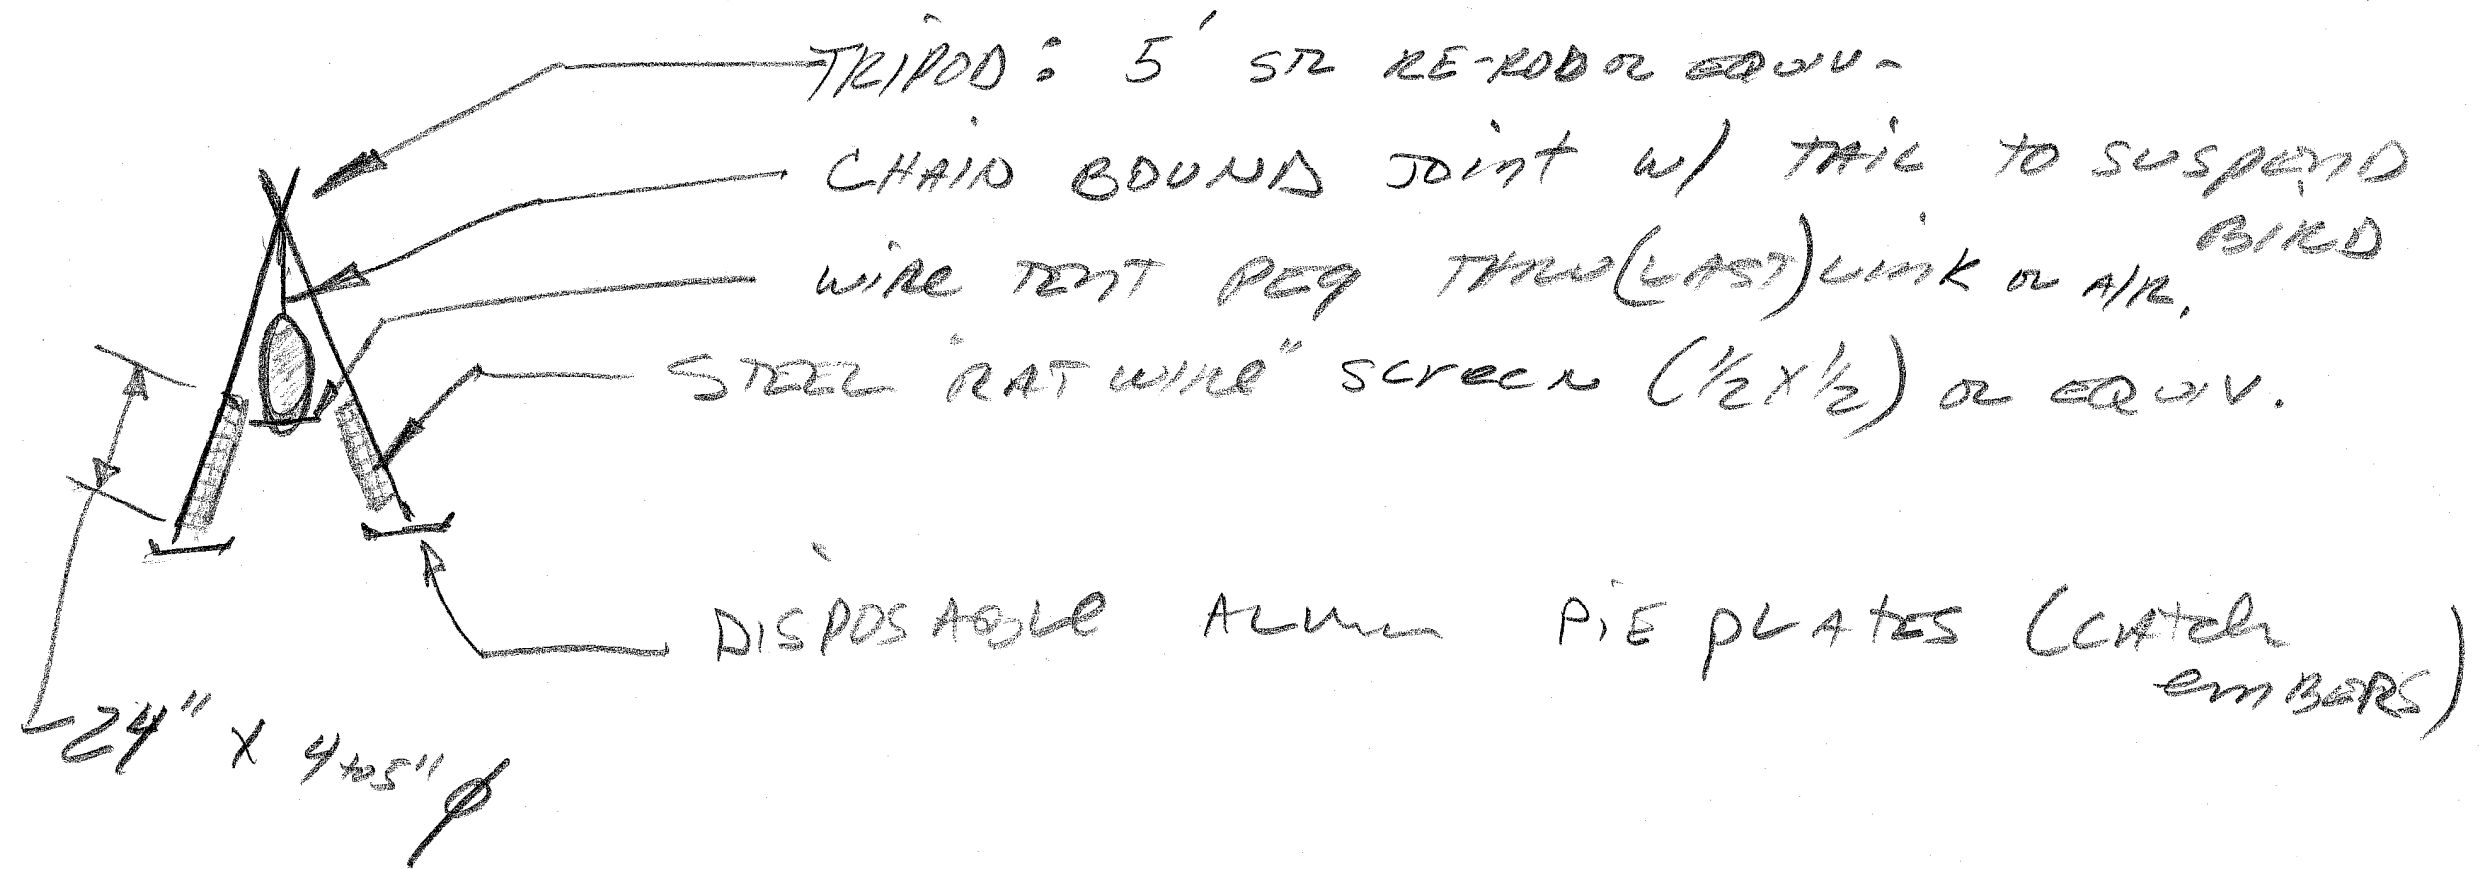 TRIPOD: 5' STR RE-ROD OR EQUIV-
CHAIN BOUND JOINT W/ TAIL TO SUSPEND
BIRD
WIRE TENT PEG THRU (LAST) LINK OR A/R.
STEEL "RAT WIRE" SCREEN (1/2 X 1/2) OR EQUIV.
DISPOSABLE ALUM PIE PLATES (CATCH
EMBERS)
24" X 4 TO 5" ϕ